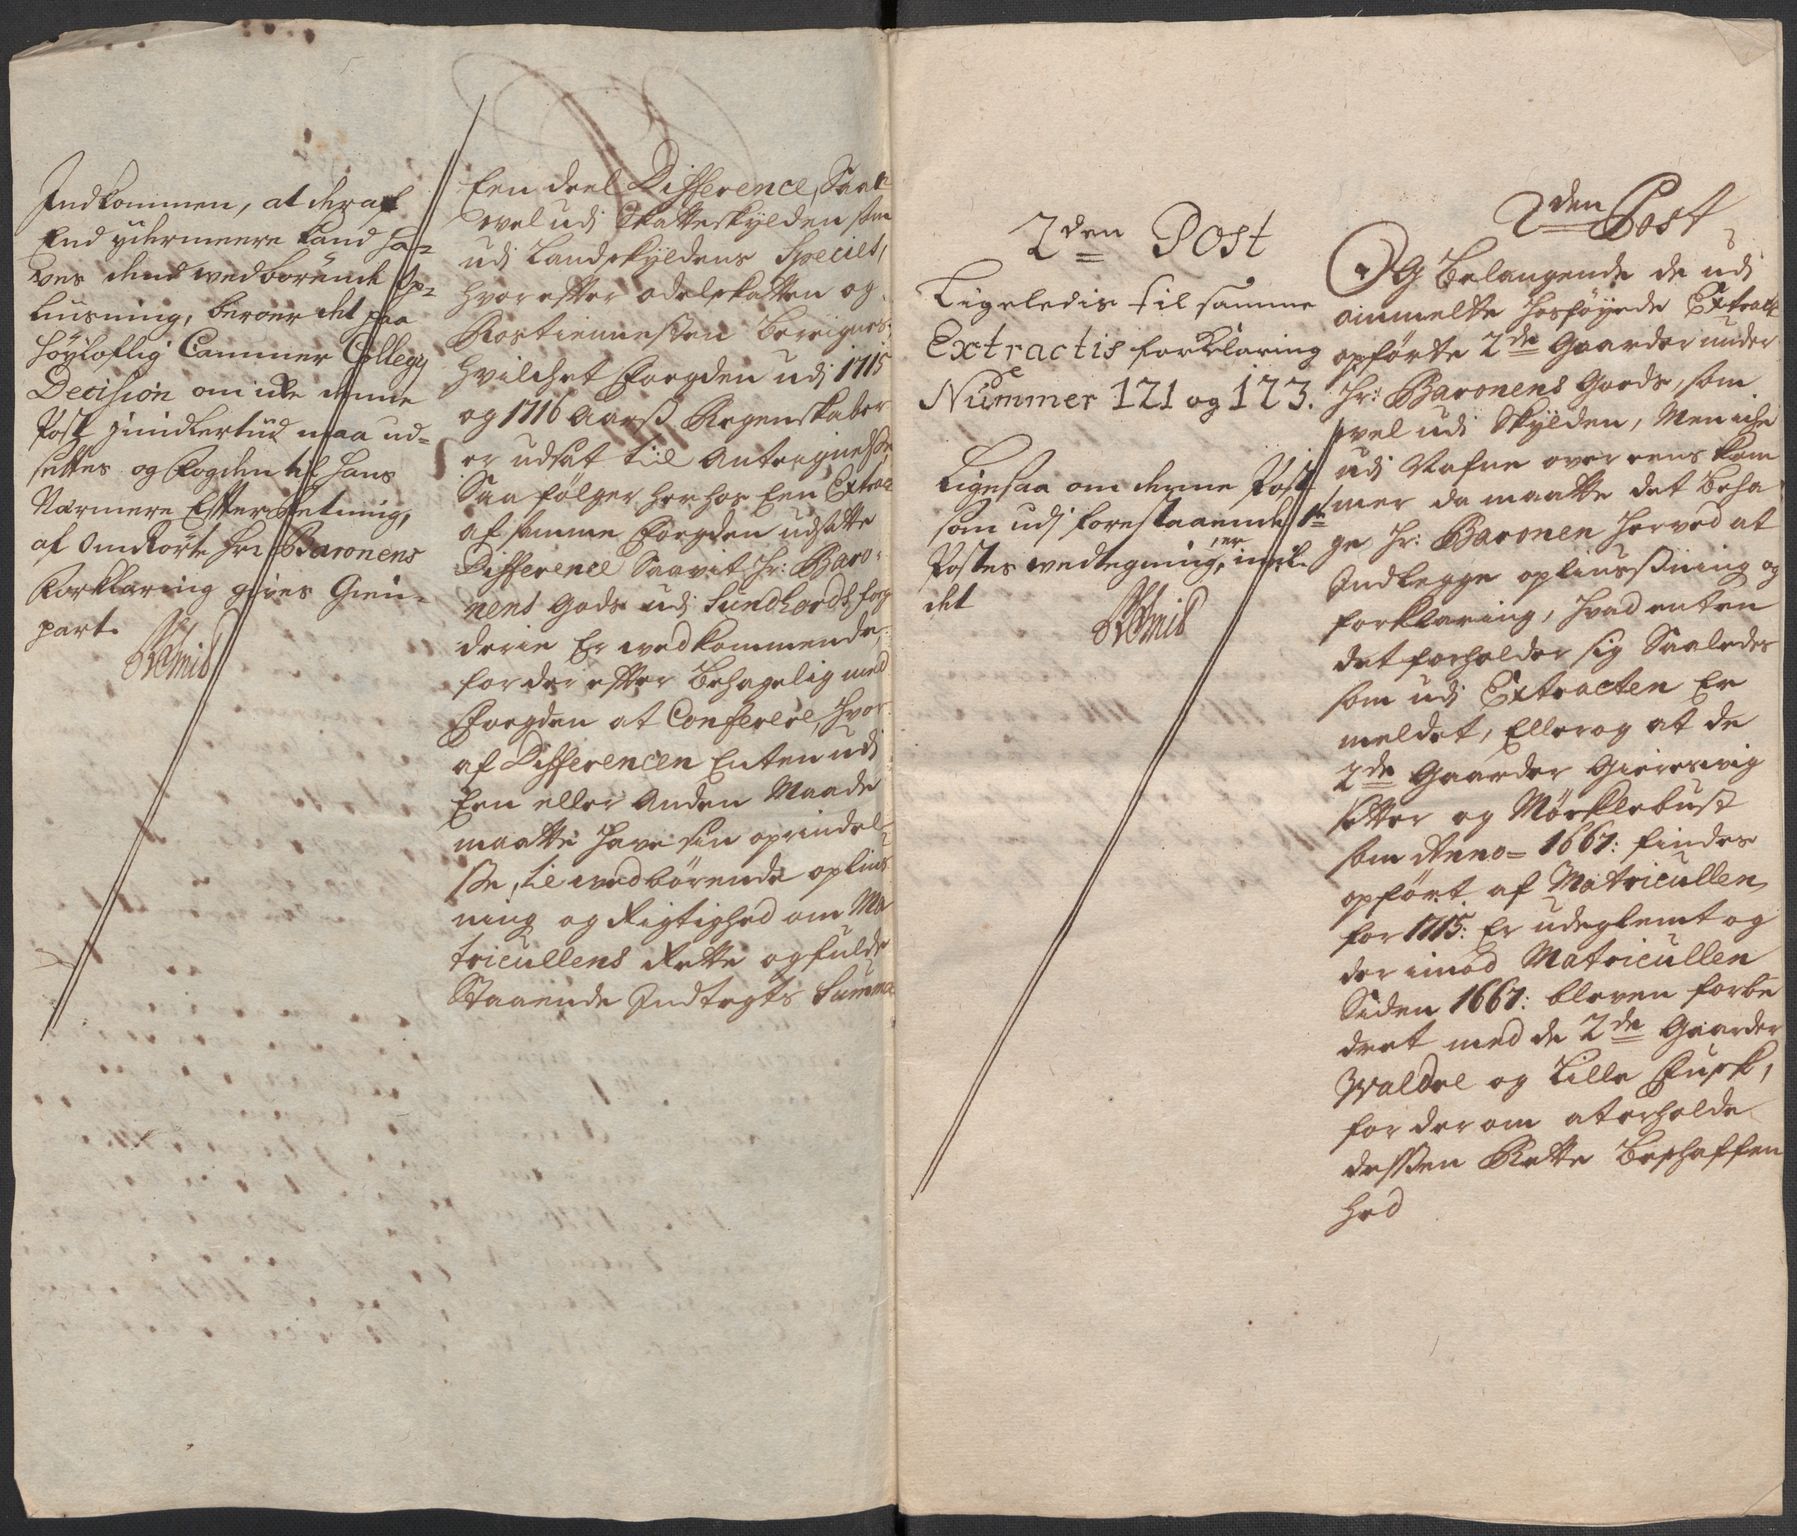 Indkommen, at deraf
End ydermeere kand ha-
ves dend wedborende Op-
liusning, beroer det paa
Höyloflig Cammer Collegy
Decision om icke denne
Post jmidlertiid maa ud-
settes og Fogden til hans
Nærmere Efterretning,
af Omrörte Hr: Baronens
Forklaring gives Gien-
part.
Een deel Difference, Saa
vel udj Skatteskylden som
udj Landskyldens Species,
hvorefter odelskatten og
Rostienneste bereignes
hvilchet Foegden udj 1715
og 1716 Aars Regenskaber
er udsat til Anteignelse,
Saa følger herhos Een Extract
af samme Foegden udsatte
Difference Saavit Hr: Baro-
nens Gods udj Sundhords fog
derie Er vedkommende,
for der efter behagelig med
Foegden at Conferere, hvor
af Differencen Enten udj
Een eller Anden Maade
maatte have sin oprindel-
se, til vedbørende oplius
ning og Rigtighed om Ma
tricullens Rette og fulde
Staaende Indtegts Summa
2den Post
Ligeledis til samme
Extractis forklaring
Nummer 121 og 123.
Ligesaa om denne Post
som udj forestaaende 1te
Postes vedtegning, er
det
2den Post
Og belangende de udj
ommelte hosføyede Extract
opførte 2de Gaarder under
Hr: Baronens Gods, som
vel udj Skylden, Men iche
udj Nafne over eens kom
mer da maatte det beha
ge Hr: Baronen herved at
Indlegge opliussning og
forklaring, hvad enten
det forholder sig Saaledes
som udj Extracten Er
meldet, Eller og at de
2de Gaarder Gieresvig
setter og Mørklebust
som Anno 1667: findes
opført, af Matricullen
for 1715: Er udeglemt og
der imod Matricullen
Siden 1667: bleven forbe
dret med de 2de Gaarder
Waldel og Lille Fusk,
for derom at erholde
dessen Rette beschaffen
hed